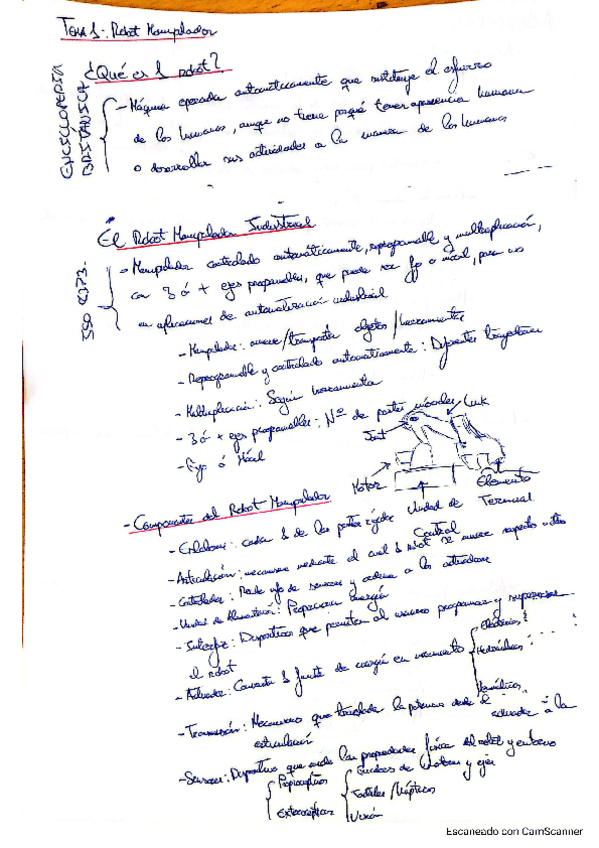 Tema 1: Robot Manipulador
ENCICLOPEDIA
BRITÁNICA
¿Qué es 1 robot?
- Máquina operada automáticamente que sustituye el esfuerzo
de los humanos, aunque no tiene porqué tener apariencia humana
o desarrollar sus actividades a la manera de los humanos
ISO 8373.
El Robot Manipulador Industrial
- Manipulador controlado automáticamente, reprogramable y multiaplicación,
con 3 ó + ejes programables, que puede ser fijo o móvil, para uso
en aplicaciones de automatización industrial
- Manipulador: mueve/transporta objetos/herramientas
- Reprogramable y controlado automáticamente: Diferentes trayectorias
- Multiaplicación: Según herramienta
- 3 ó + ejes programables: Nº de partes móviles
- Fijo ó Móvil
Link
Joint
Motor
Unidad de
Control
Elemento
Terminal
- Componentes del Robot Manipulador
- Eslabones: cada 1 de las partes rígidas
- Articulación: mecanismo mediante el cual 1 robot se mueve respecto a otro
- Controlador: Recibe info de sensores y ordena a los actuadores
- Unidad de Alimentación: Proporciona Energía
- Interfaz: Dispositivos que permiten al usuario programar y supervisar
el robot
- Actuador: Convierte 1 fuente de energía en movimiento
Eléctricos
Hidráulicos
Neumáticos
- Transmisión: Mecanismo que traslada la potencia desde el actuador a la
articulación
- Sensores: Dispositivo que mide las propiedades físicas del robot y entorno
Propioceptivos
Exteroceptivos
Táctiles / Hápticos
Visión
Escaneado con CamScanner